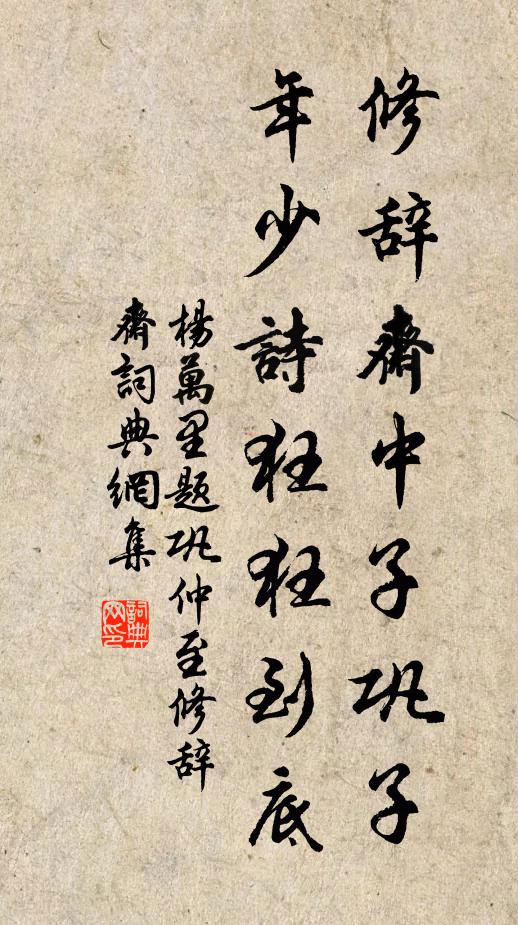 修辞齋中子巩子
年少詩狂狂到底
楊萬里题巩仲至修辞
齋詞典網集
詞典网印